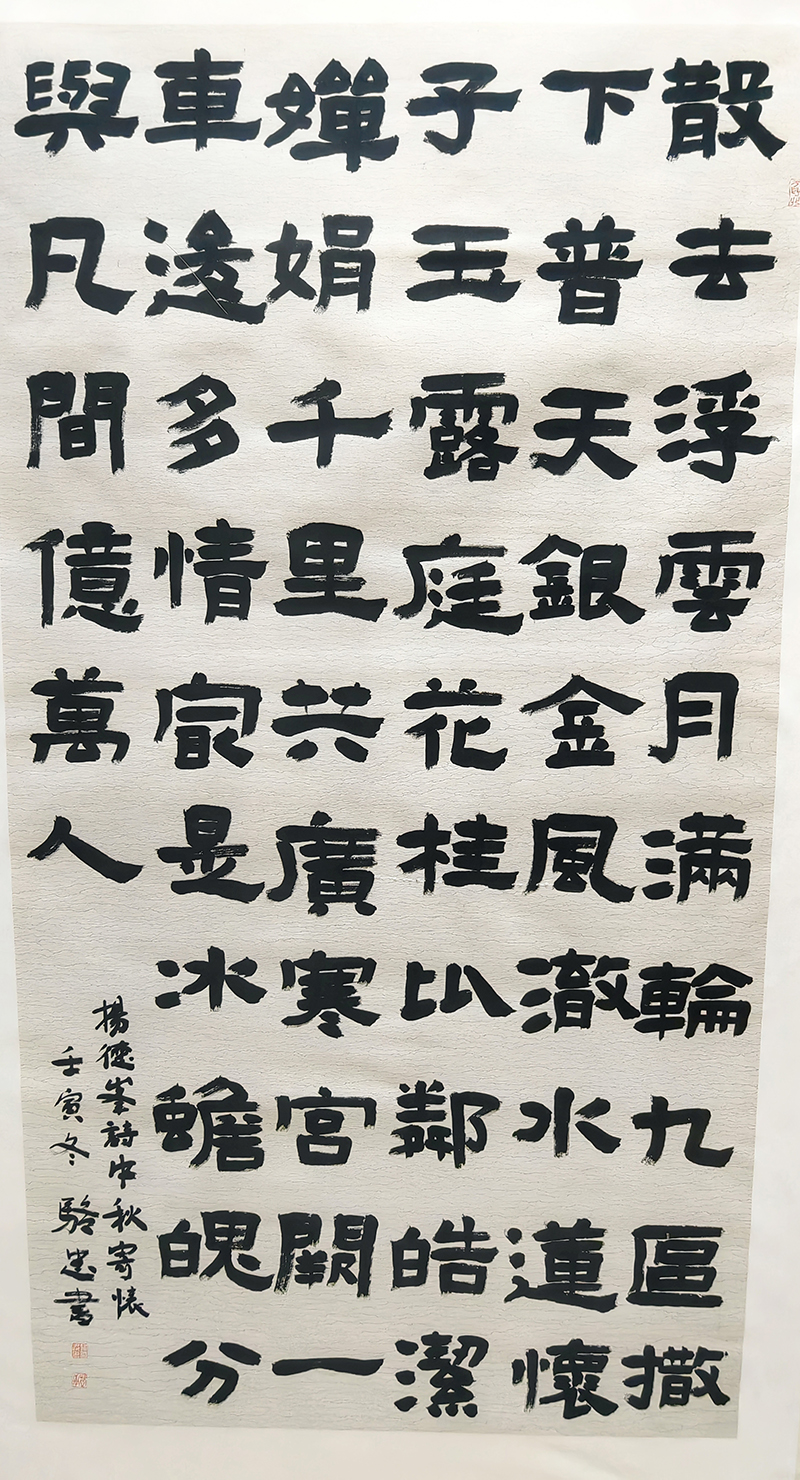 散去浮雲月滿輪九區撒
下普天銀金風澈水蓮懷
子玉露庭花桂比鄰皓潔
嬋娟千里共廣寒宮闕一
車逡多情冣是冰蟾魄分
與凡間億萬人
楊德峯詩中秋寄懷
壬寅冬 駱忠書